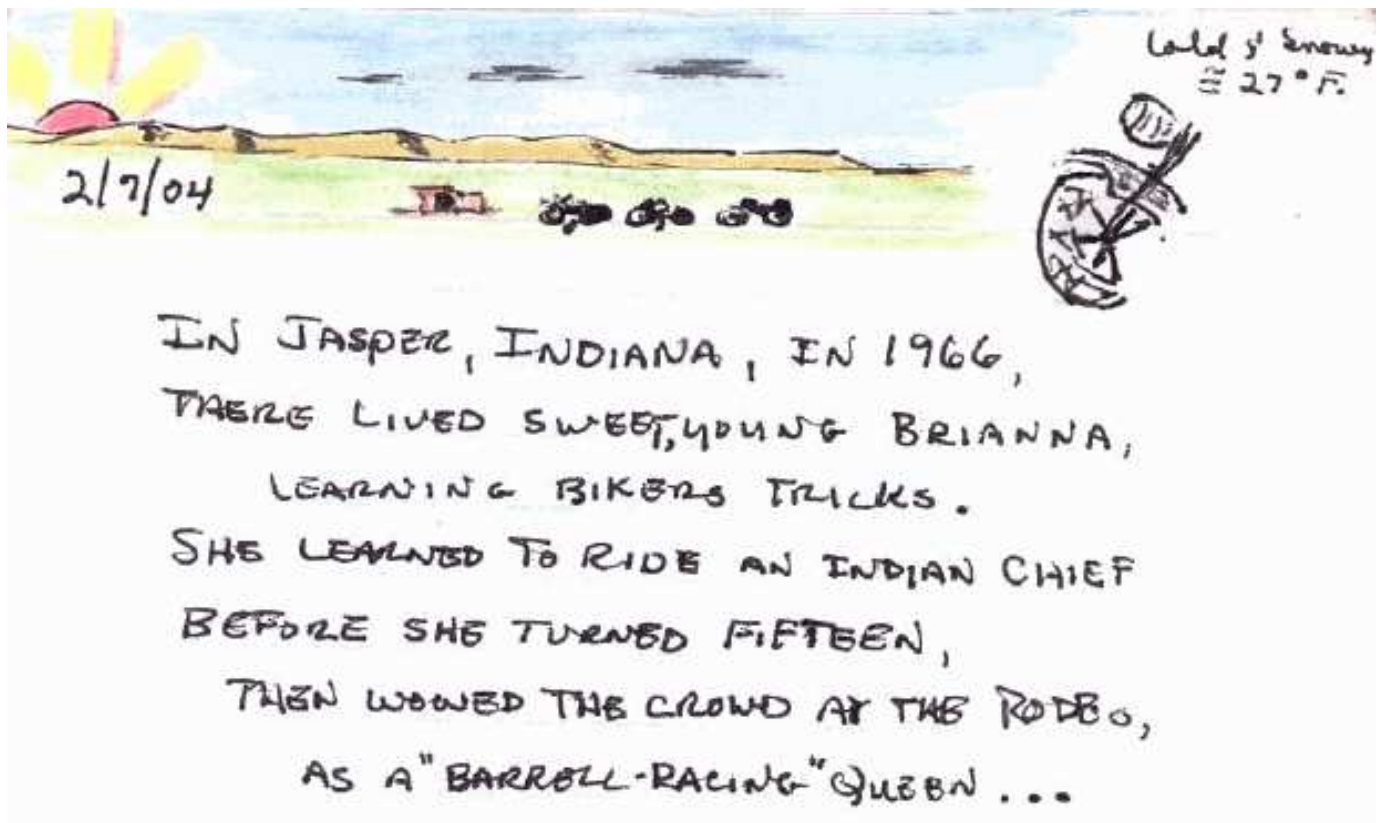 Cold & Snowy
≅ 27° F.
2/7/04
IN JASPER, INDIANA, IN 1966,
THERE LIVED SWEET, YOUNG BRIANNA,
LEARNING BIKERS TRICKS.
SHE LEARNED TO RIDE AN INDIAN CHIEF
BEFORE SHE TURNED FIFTEEN,
THEN WOWED THE CROWD AT THE RODEO,
AS A "BARRELL-RACING" QUEEN...